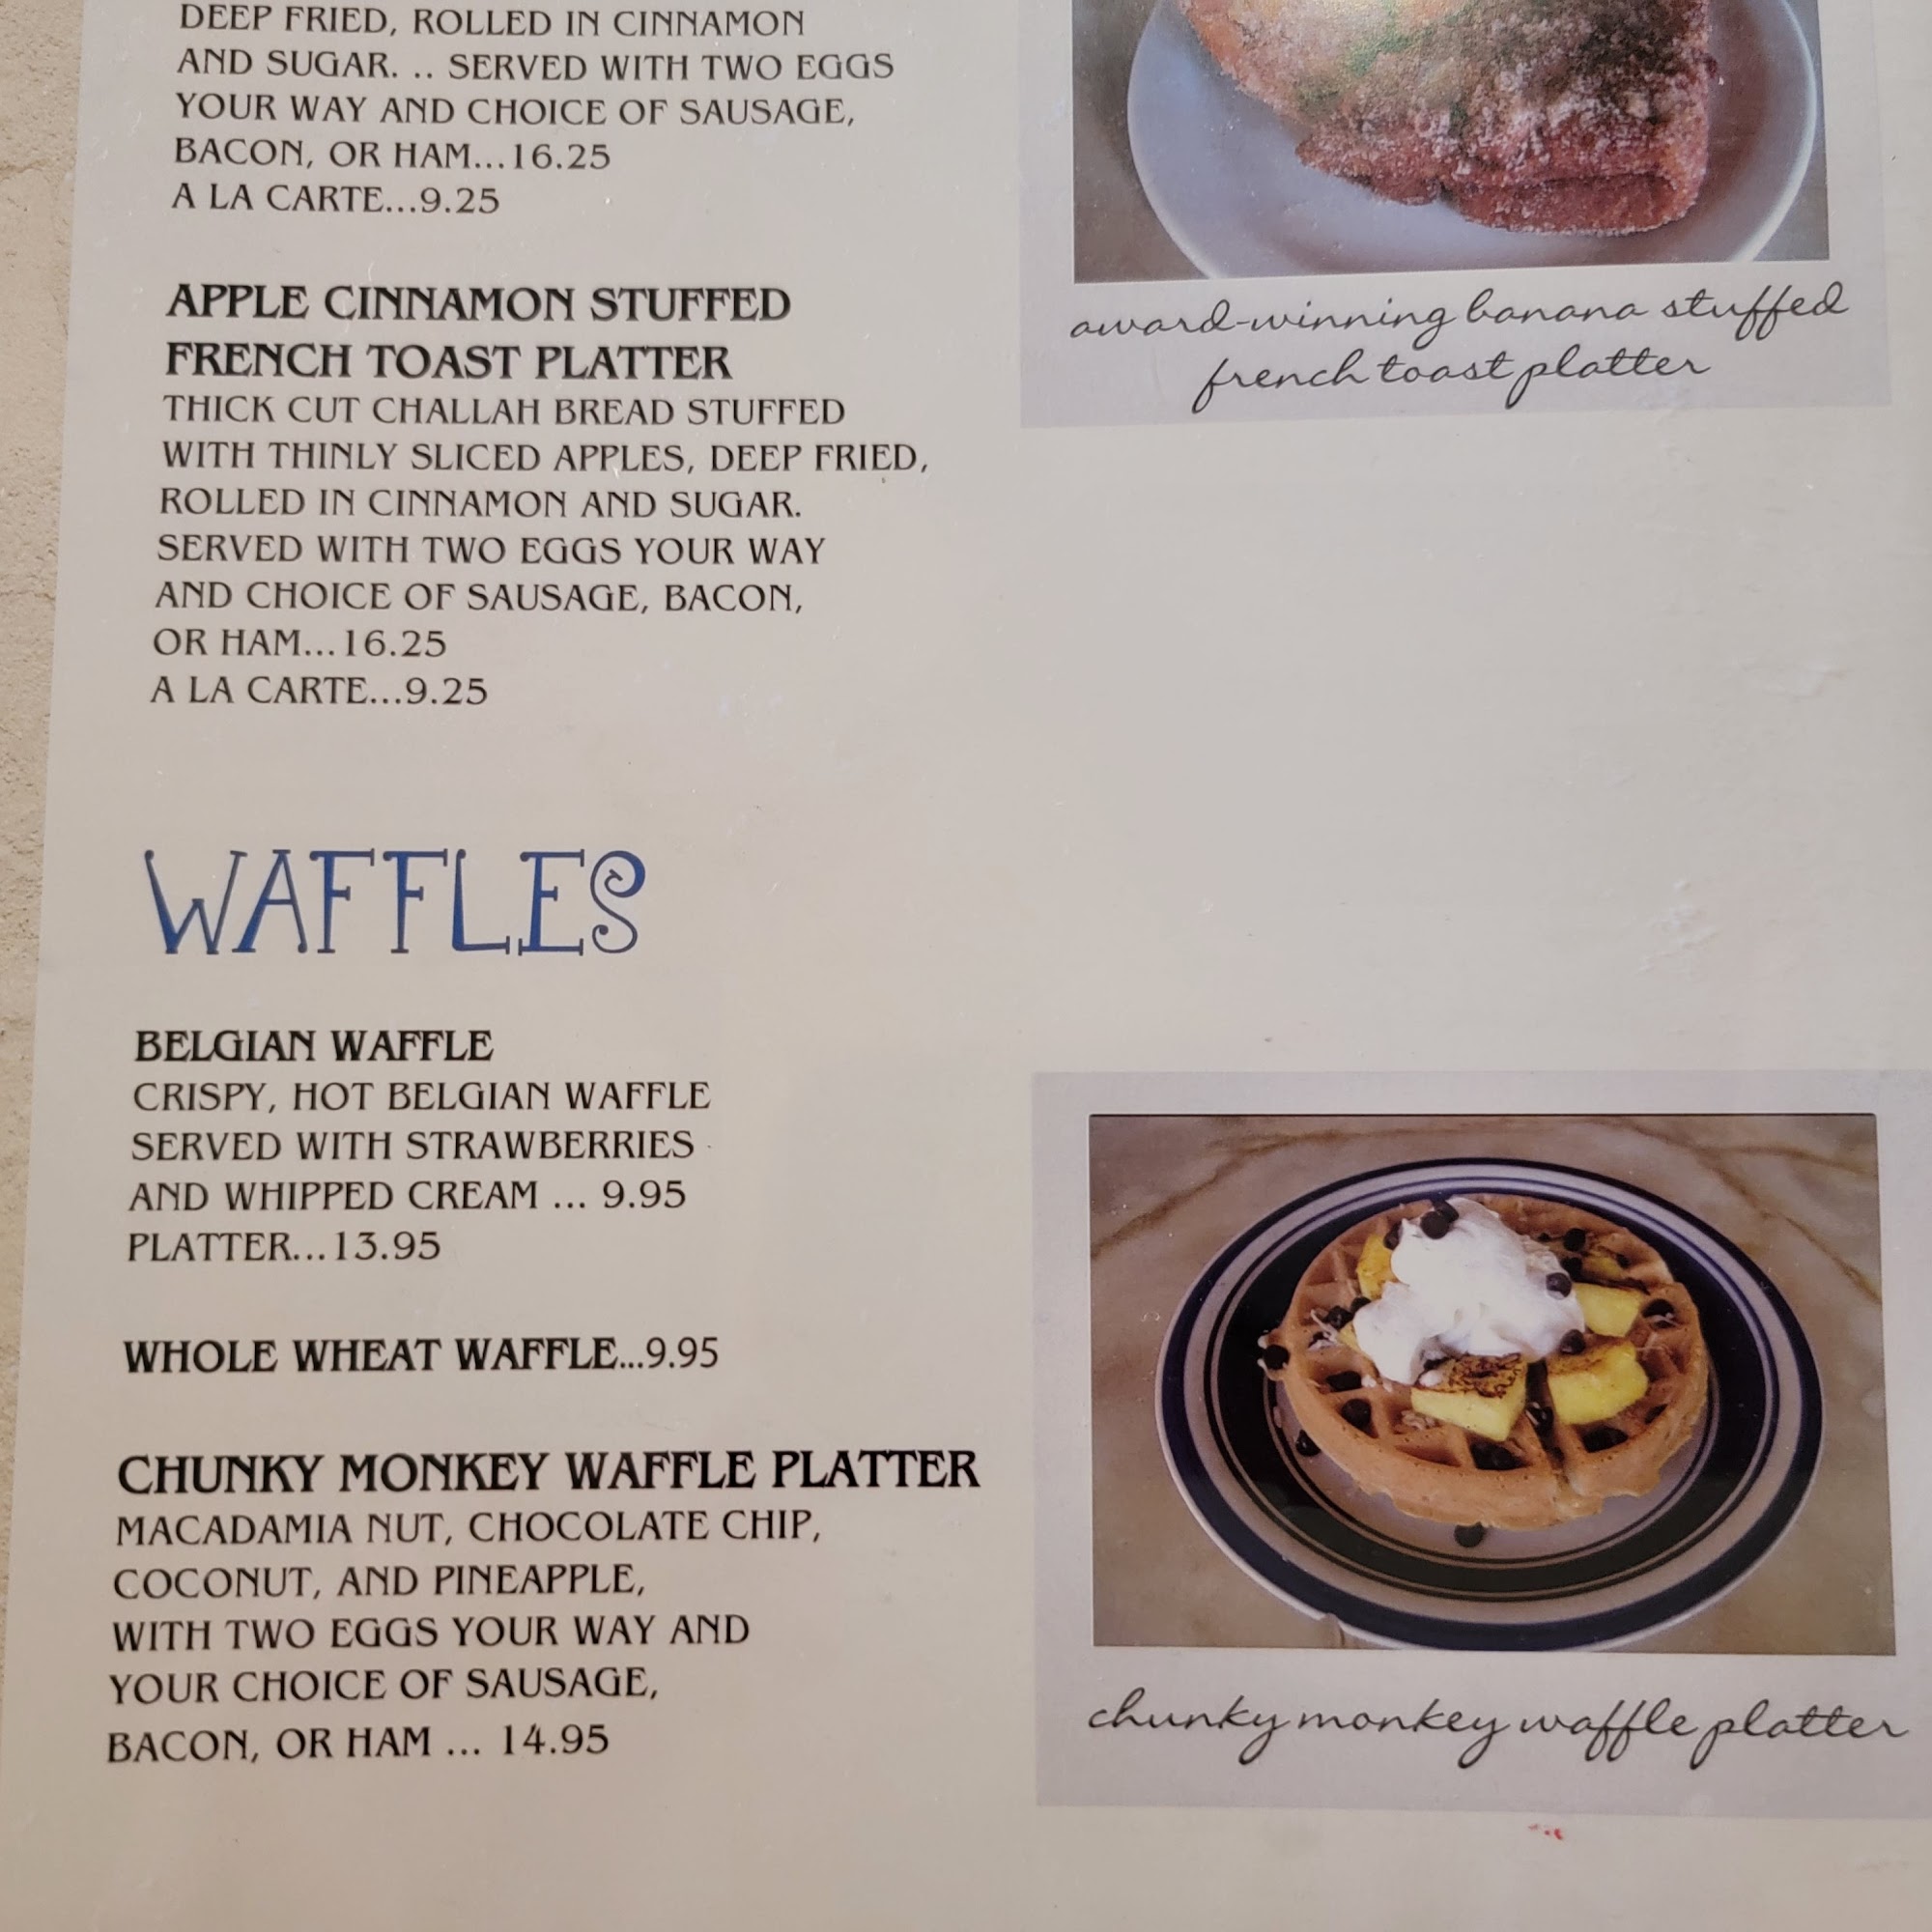 DEEP FRIED, ROLLED IN CINNAMON
AND SUGAR. .. SERVED WITH TWO EGGS
YOUR WAY AND CHOICE OF SAUSAGE,
BACON, OR HAM...16.25
A LA CARTE...9.25
award-winning banana stuffed
french toast platter
APPLE CINNAMON STUFFED
FRENCH TOAST PLATTER
THICK CUT CHALLAH BREAD STUFFED
WITH THINLY SLICED APPLES, DEEP FRIED,
ROLLED IN CINNAMON AND SUGAR.
SERVED WITH TWO EGGS YOUR WAY
AND CHOICE OF SAUSAGE, BACON,
OR HAM...16.25
A LA CARTE...9.25
WAFFLES
BELGIAN WAFFLE
CRISPY, HOT BELGIAN WAFFLE
SERVED WITH STRAWBERRIES
AND WHIPPED CREAM ... 9.95
PLATTER...13.95
WHOLE WHEAT WAFFLE...9.95
CHUNKY MONKEY WAFFLE PLATTER
MACADAMIA NUT, CHOCOLATE CHIP,
COCONUT, AND PINEAPPLE,
WITH TWO EGGS YOUR WAY AND
YOUR CHOICE OF SAUSAGE,
BACON, OR HAM ... 14.95
chunky monkey waffle platter